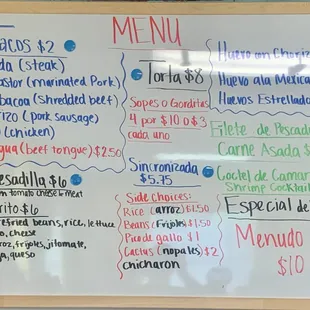 MENU
ACOS $2
da (steak)
astor (marinated Pork)
bacoa (shredded beef)
rizo (pork sausage)
o (chicken)
gua (beef tongue) $2.50
esadilla $6
tomato cheese & meat
rito $6
refried beans, rice, lettuce
o, cheese
roz, frijoles, jitomate,
ga, queso
Torta $8
Sopes o Gorditas
4 por $10 o $3
cada uno
Sincronizada
$5.75
Side choices:
Rice (arroz) $1.50
Beans (Frijoles) $1.50
Pico de gallo $1
Cactus (nopales) $2
chicharon
Huevo con Choriz
Huevo ala Mexica
Huevos Estrellado
Filete de Pescad
Carne Asada $
Coctel de Camar
Shrimp Cocktail
Especial de
Menudo
$10